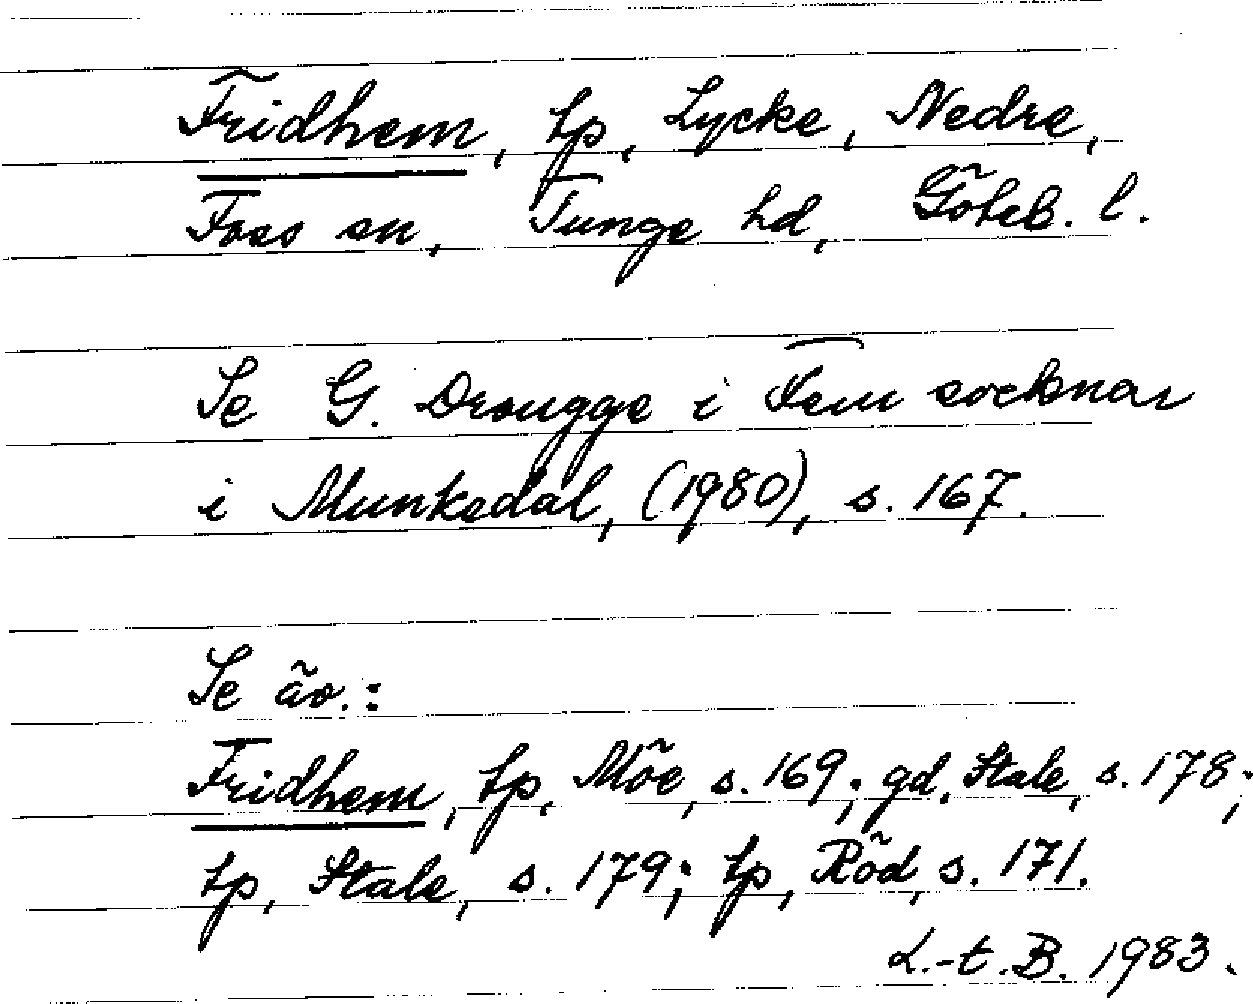 Fridhem, tp, Lycke, Nedre,
Foss sn, Tunge hd, Göteb. l.
Se G. Drougge i Fem socknar
i Munkedal, (1980), s. 167.
Se äv.:
Fridhem, tp, Möe, s. 169; gd, Stale, s. 178;
tp, Stale, s. 179; tp, Röd, s. 171.
L.-t. B. 1983.